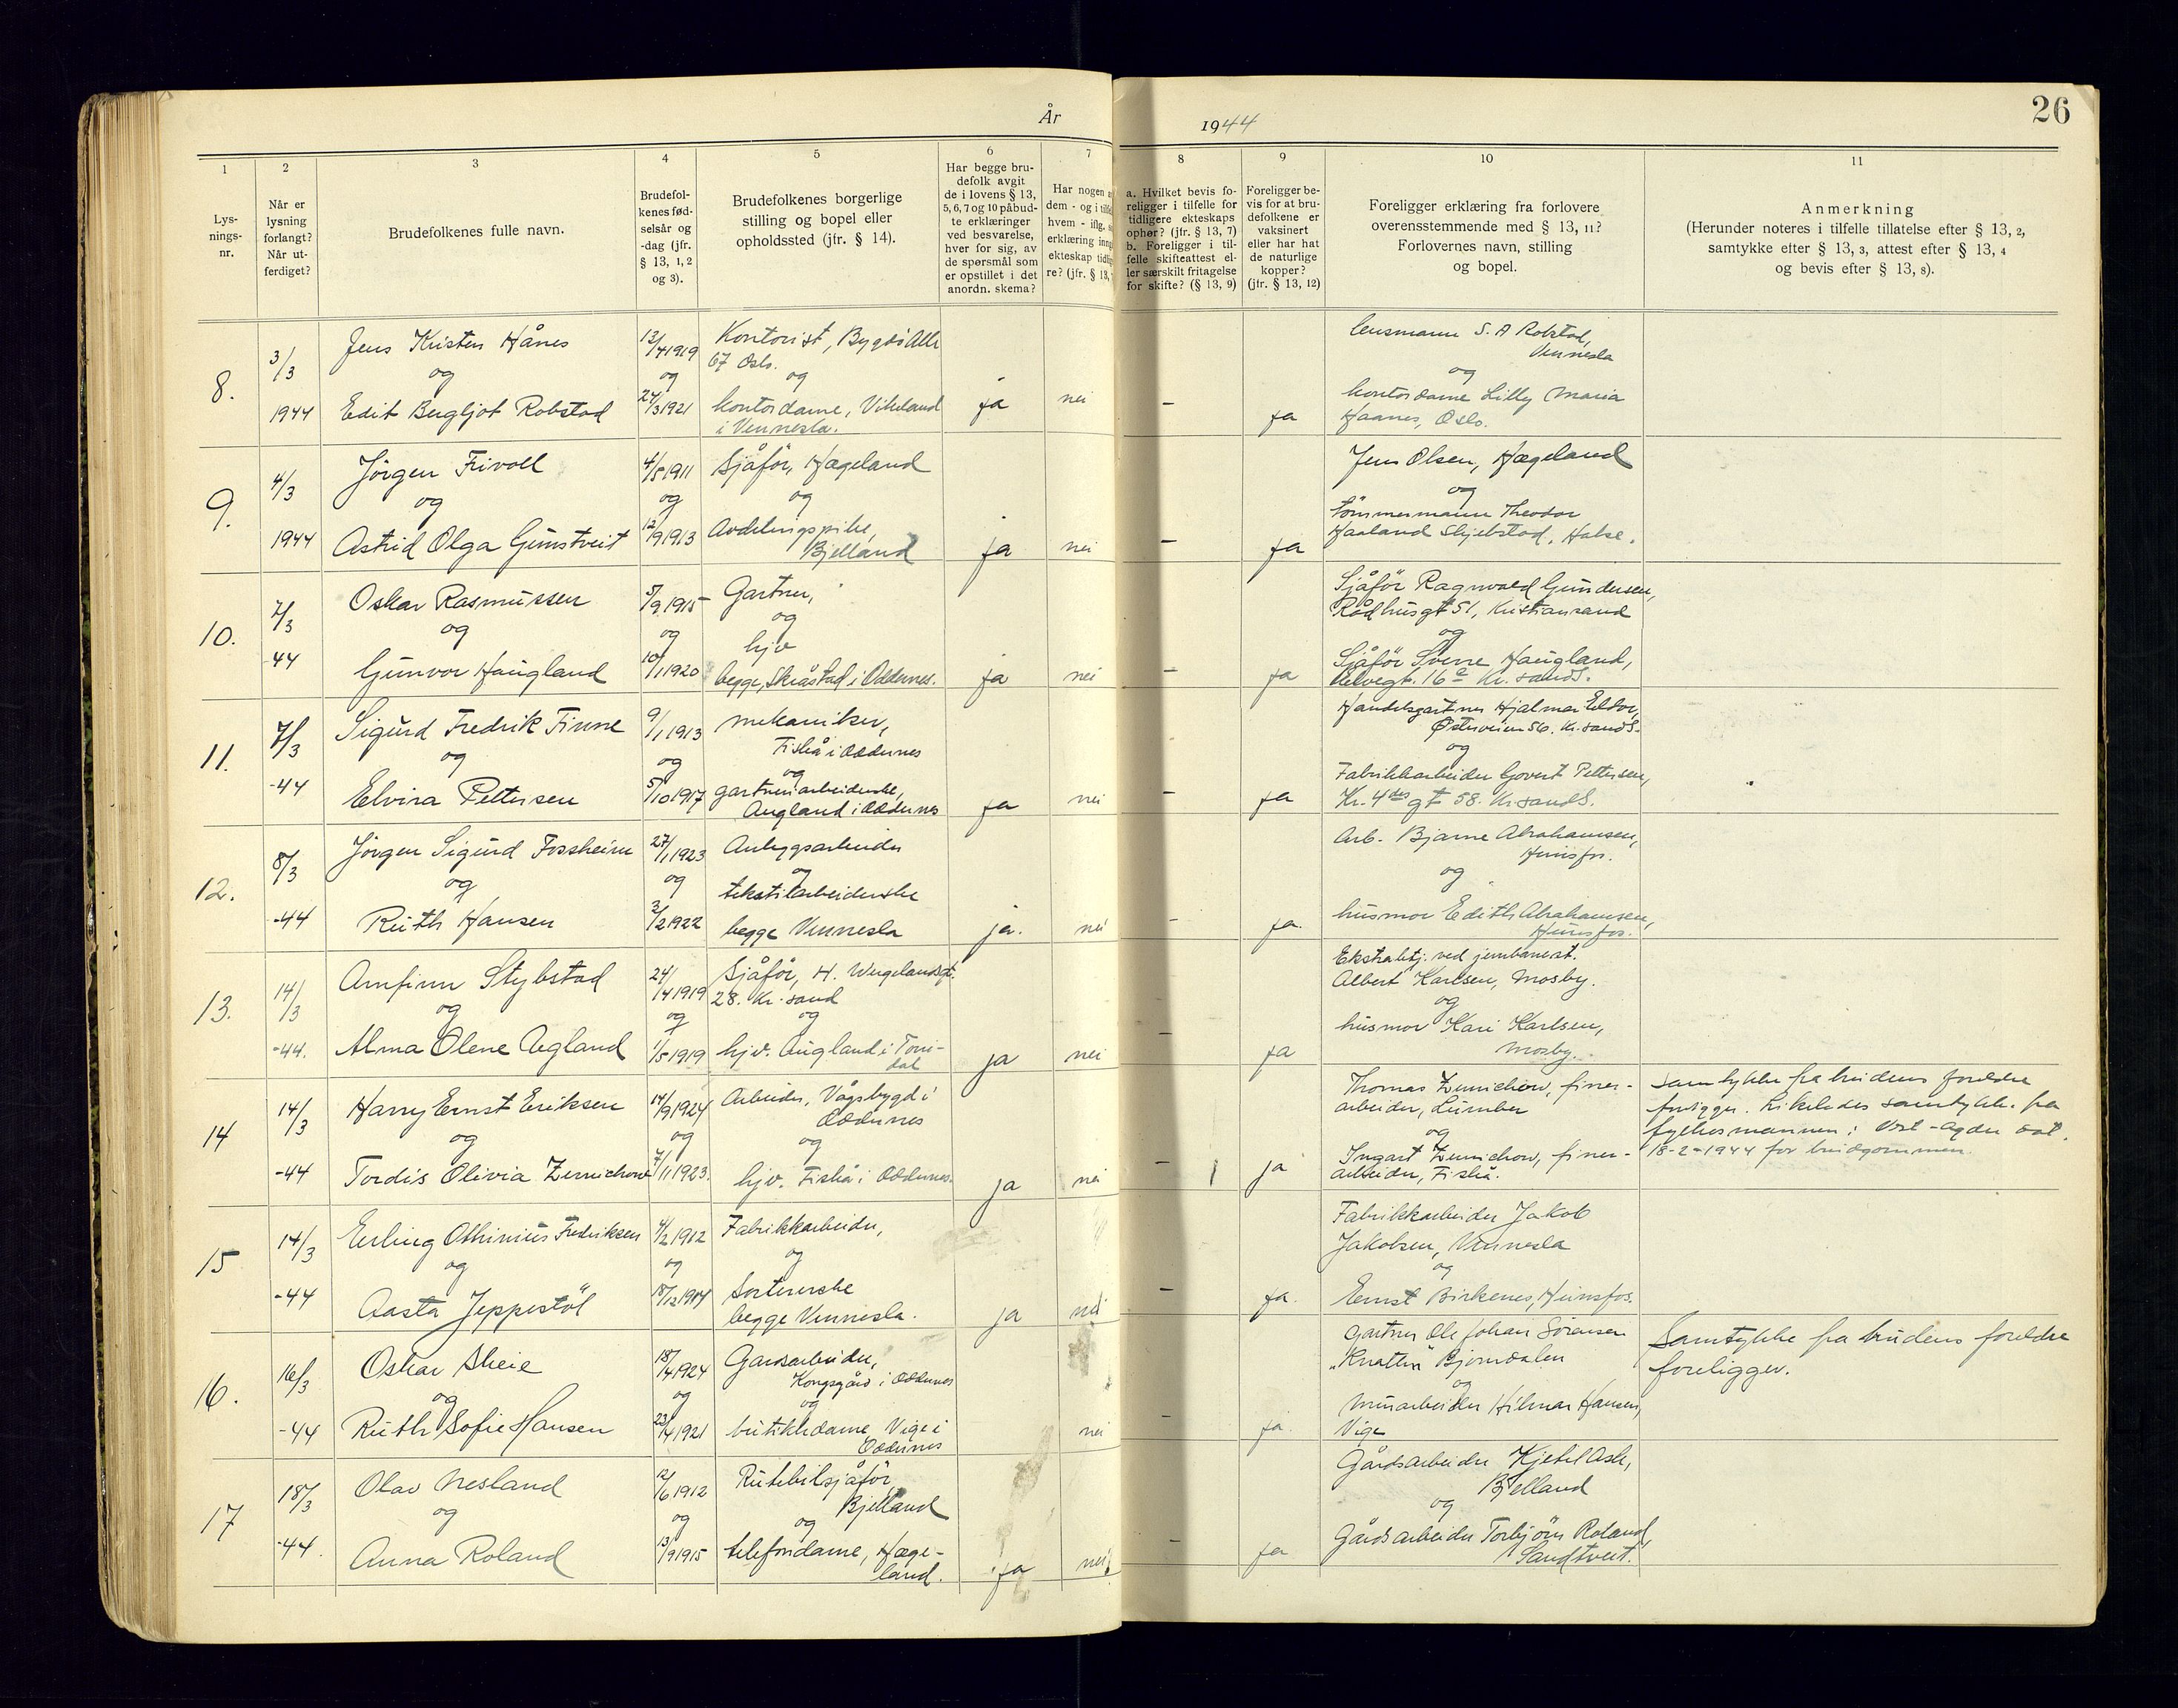 År
1944
26
1
2
3
4
5
6
7
8
9
10
11
Lys-
nings-
nr.
Når er
lysning
forlangt?
Når ut-
ferdiget?
Brudefolkenes fulle navn.
Brudefol-
kenes fød-
selsår og
-dag (jfr.
§ 13, 1, 2
og 3).
Brudefolkenes borgerlige
stilling og bopel eller
opholdssted (jfr. § 14).
Har begge bru-
defolk avgit
de i lovens § 13,
5, 6, 7 og 10 påbud-
te erklæringer
ved besvarelse,
hver for sig, av
de spørsmål som
er opstillet i det
anordn. skema?
Har nogen
dem - og i
hvem - iflg.
erklæring
ekteskap
re? (jfr. § 13,
a. Hvilket bevis fo-
religger i tilfelle for
tidligere ekteskaps
ophør? (jfr. § 13, 7)
b. Foreligger i til-
felle skifteattest el-
ler særskilt fritagelse
for skifte? (§ 13, 9)
Foreligger be-
vis for at bru-
defolkene er
vaksinert
eller har hat
de naturlige
kopper?
(jfr. § 13, 12)
Foreligger erklæring fra forlovere
overensstemmende med § 13, 11?
Forlovernes navn, stilling
og bopel.
Anmerkning
(Herunder noteres i tilfelle tillatelse efter § 13, 2,
samtykke efter § 13, 3, attest efter § 13, 4
og bevis efter § 13, 8).
8.
3/3
1944
Jens Kristen Hånes
og
Edit Bergljot Robstad
12/4 1919
og
24/3 1921
Kontorist, Bygdö Alle
67 Oslo.
og
kontordame, Vikeland
i Vennesla.
ja
nei
–
ja
lensmann S. A Robstad,
Vennesla
og
kontordame Lilly Maria
Haanes, Oslo.
9.
4/3
1944
Jörgen Frivoll
og
Astrid Olga Gunstveit
4/5 1911
og
12/9 1913
Sjåför, Hægeland
og
Avdelingspike,
Bjelland
ja
nei
–
ja
Jens Olsen, Hægeland
og
tömmermann Theodor
Haaland Skjebstad, Halse.
10.
7/3
-44
Oskar Rasmussen
og
Gunvor Haugland
5/9 1915
og
10/1 1920
Gartner,
og
hjv
begge, Skråstad i Oddernes.
ja
nei
–
ja
Sjåför Ragnvald Gundersen,
Rådhusgt 51, Kristiansand
og
Sjåför Sverre Haugland,
Elvegt. 16 a Kr. sand S.
11.
7/3
-44
Sigurd Fredrik Finne
og
Elvira Pettersen
9/1 1913
og
5/10 1917
mekaniker,
Fiskå i Oddernes
og
gartneriarbeiderske,
Augland i Oddernes
ja
nei
–
ja
Handelsgartner Hjalmar Eldor,
Österveien 56. Kr. sand S.
og
Fabrikkarbeider Govert Pettersen,
Kr. 4des gt 58. Kr sand S.
12.
8/3
-44
Jörgen Sigurd Fossheim
og
Ruth Hansen
27/1 1923
og
3/2 1922
Anleggsarbeider
og
tekstilarbeiderske
begge Vennesla
ja.
nei
–
ja.
Arb. Bjarne Abrahamsen,
Hunsfos.
og
husmor Edith Abrahamsen,
Hunsfos.
13.
14/3
-44.
Arnfinn Stybstad
og
Alma Olene Aegland
24/4 1919
og
1/5 1919
Sjåför, H. Wergelandsgt.
28. Kr. sand
og
hjv. Augland i Tveit-
dal
ja
nei
–
ja
Ekstrabetj. ved jernbanest.
Albert Karlsen, Mosby.
og
husmor Kari Karlsen,
Mosby.
14
14/3
-44
Harry Ernst Eriksen
og
Tordis Olivia Zernichow
14/9 1924
og
7/11 1923.
Arbeider, Vågsbygd i
Oddernes
og
hjv. Fiskå i Oddernes.
ja
nei
–
ja
Thomas Zernichow, finer-
arbeider, Lumber
og
Ingart Zernichow, finer-
arbeider, Fiskå.
Samtykke fra brudens foreldre
foreligger. Likeledes samtykke fra
fylkesmannen i Vest-Agder dat.
18-2-1944 for brudgommen.
15
14/3
-44
Erling Othinius Fredriksen
og
Aasta Jeppestöl
4/2 1912
og
18/12 1914
Fabrikkarbeider,
og
Sortererske
begge Vennesla.
ja
nei
–
ja.
Fabrikkarbeider Jakob
Jakobsen, Vennesla
og
Ernst Birkenes, Hunsfos.
16.
16/3
-44
Oskar Skeie
og
Ruth Sofie Hansen
18/4 1924
og
23/4 1921
Gardsarbeider,
Kongsgård i Oddernes
og
butikkdame, Vige i
Oddernes
nei
–
ja.
Gartner Ole Johan Sörensen
"Knatten" Bjorndalen
og
Murarbeider Hilmar Hansen,
Vige
Samtykke fra brudens foreldre
foreligger.
17
18/3
-44.
Olav Nesland
og
Anna Roland
12/6 1912
og
13/9 1915
Rutebilsjåför,
Bjelland
og
telefondame, Hæge-
land.
ja
nei
–
ja
Gårdsarbeider Kjetil Ask,
Bjelland
og
Gårdsarbeider Torbjörn Roland,
Sandtveit.